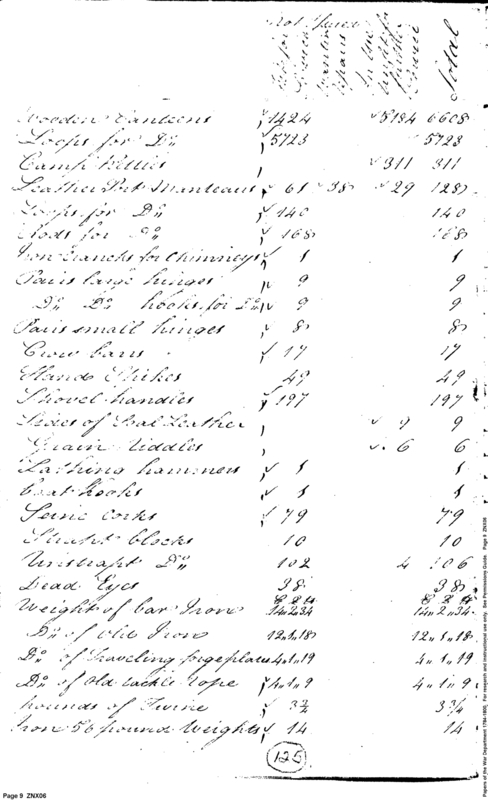 Not Issued
Fit for Service
Wanting Repairs
Total
Wooden Canteens 1424 5184 6608
Loops for Do 5723 5723
Camp Kettles 311 311
Leather Port Manteaus 61 38 29 128
Loops for Do 140 140
Rods for Do 168 168
Iron for Chimneys 1 1
Pairs large hinges 9 9
Do Do hooks for Do 9 9
Pairs small hinges 8 8
Crow bars 17 17
Hand Spikes 49 49
Shovel handles 197 197
Sides of Leather 9 9
Grain Riddles 6 6
Lathing hammers 1 1
boat Hooks 1 1
Seine corks 79 79
Strapt blocks 10 10
Unstrapt Do 102 4 106
Dead Eyes 38 38
Weight of bar Iron 14.2.34 14.2.34
Do of old Iron 12.1.18 12.1.18
Do of Traveling forge plates 4.1.19 4.1.19
Do of Old tackle rope 4.1.9 4.1.9
Pounds of Twine 3¾ 3¾
Iron 56 pound Weights 14 14
125
Page 9 ZNX06
Papers of the War Department 1784-1800. For research and instructional use only. See Permissions Guide. Page 9 ZNX06